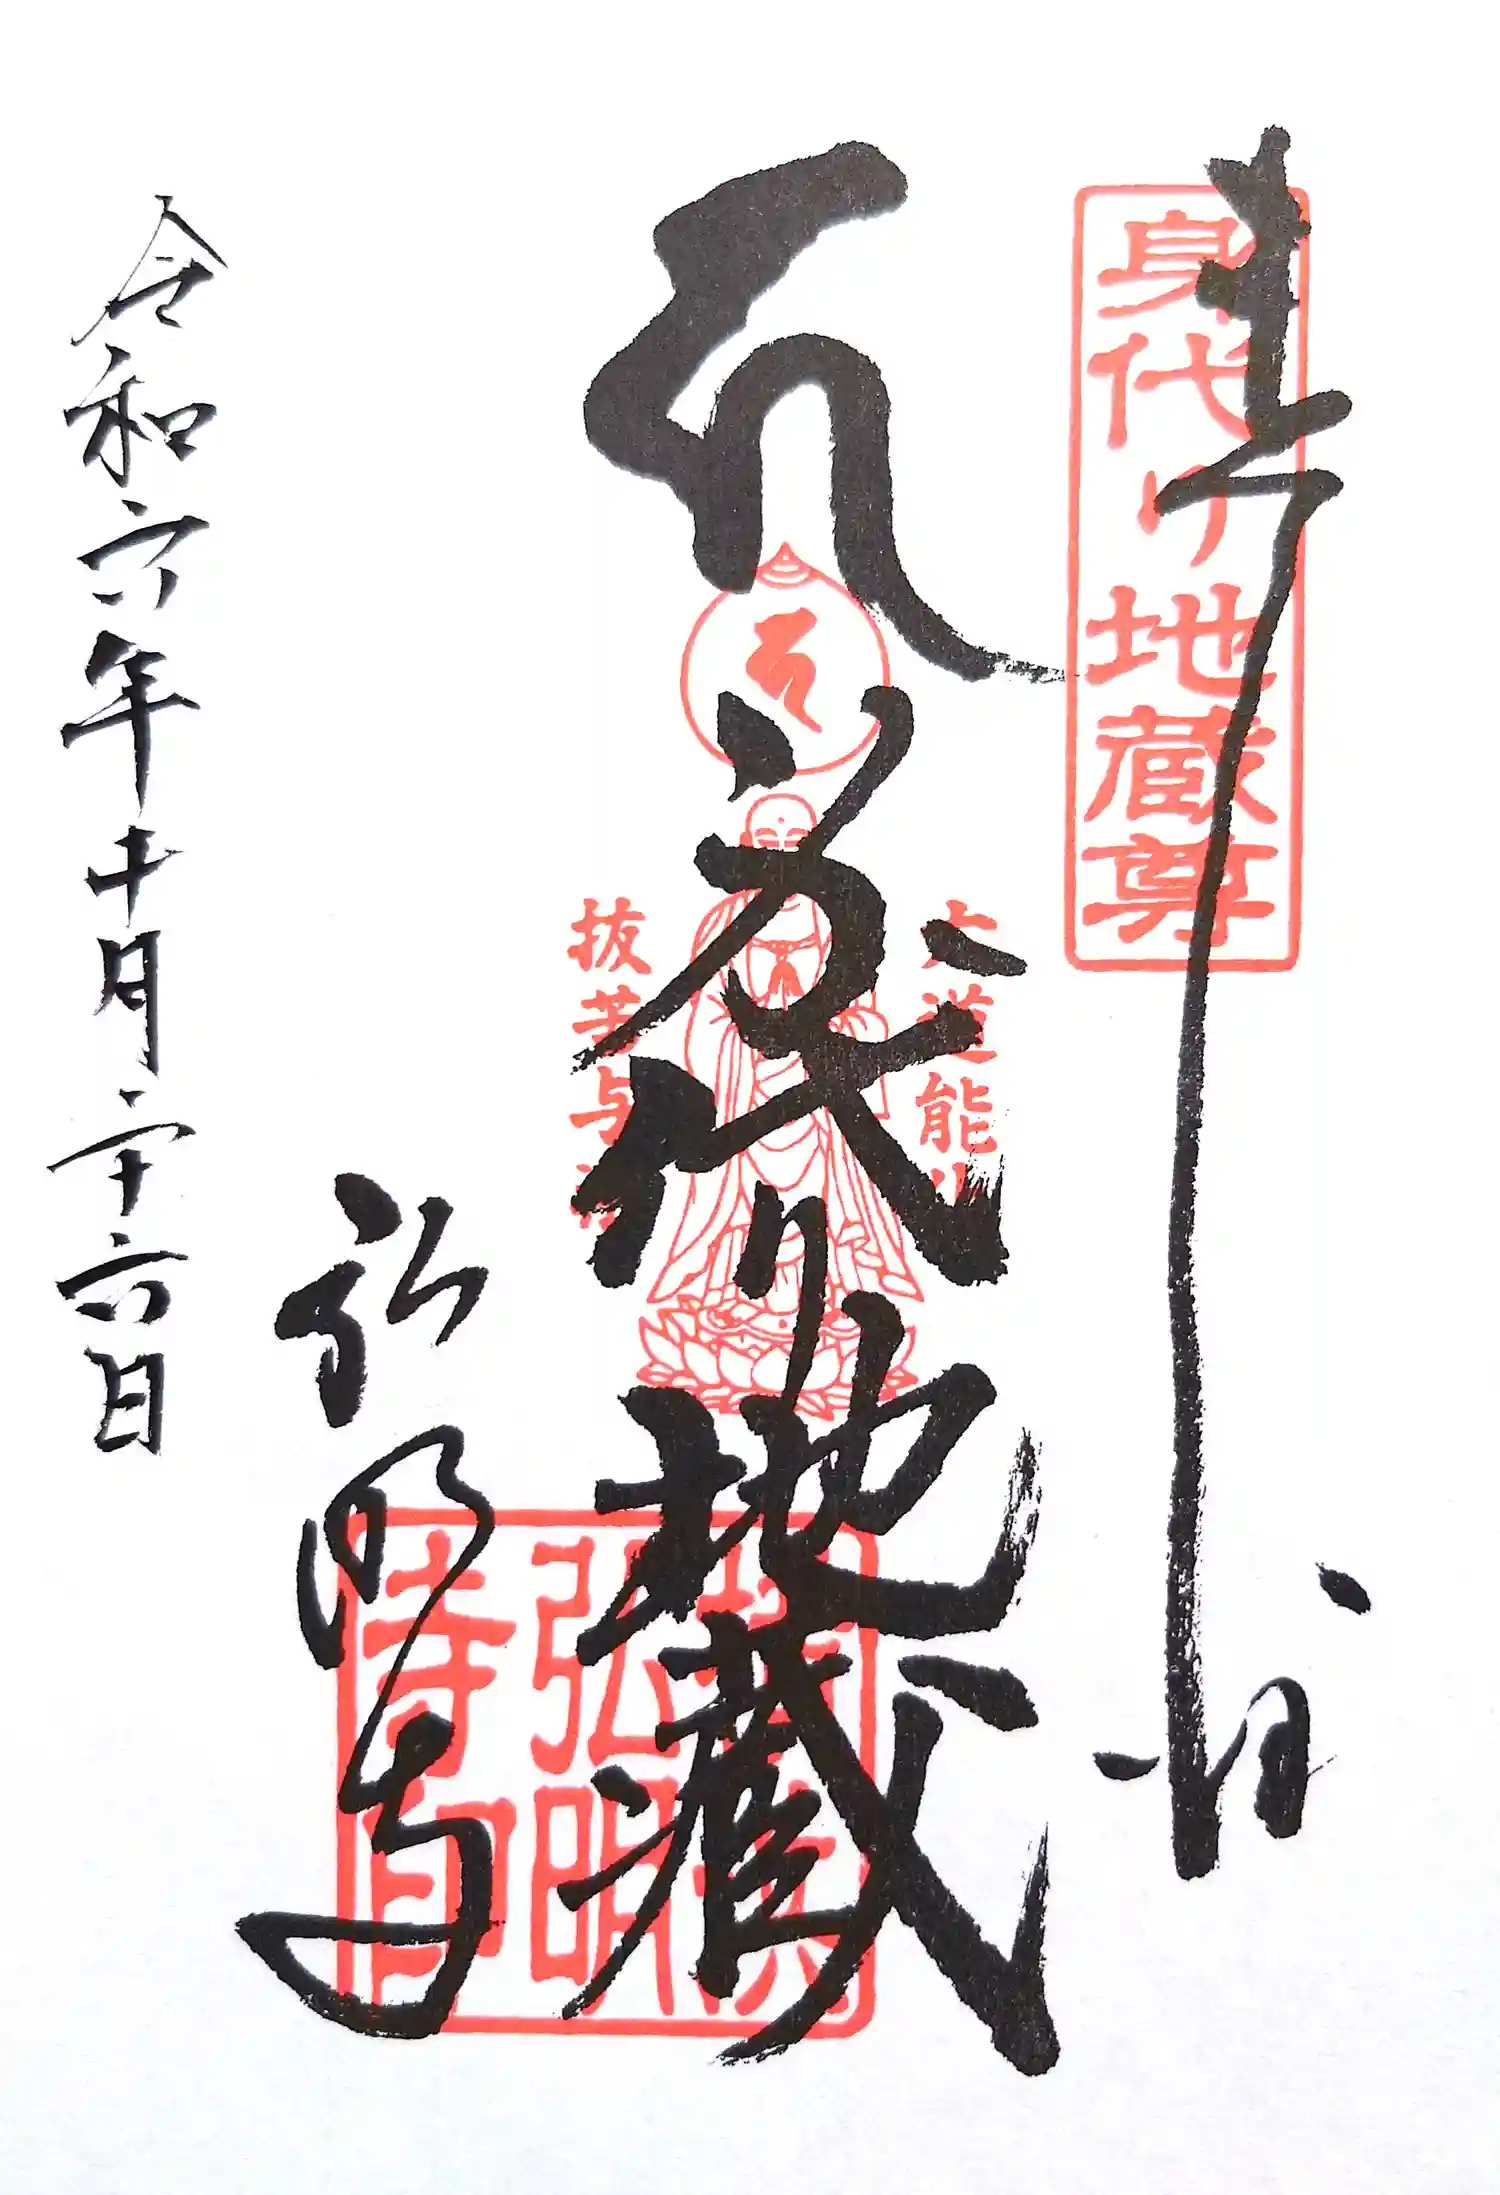 奉拝
身代り地蔵尊
身代り地蔵
六道能化
抜苦与楽
弘明
寺印
弘明寺
令和六年十月二十六日